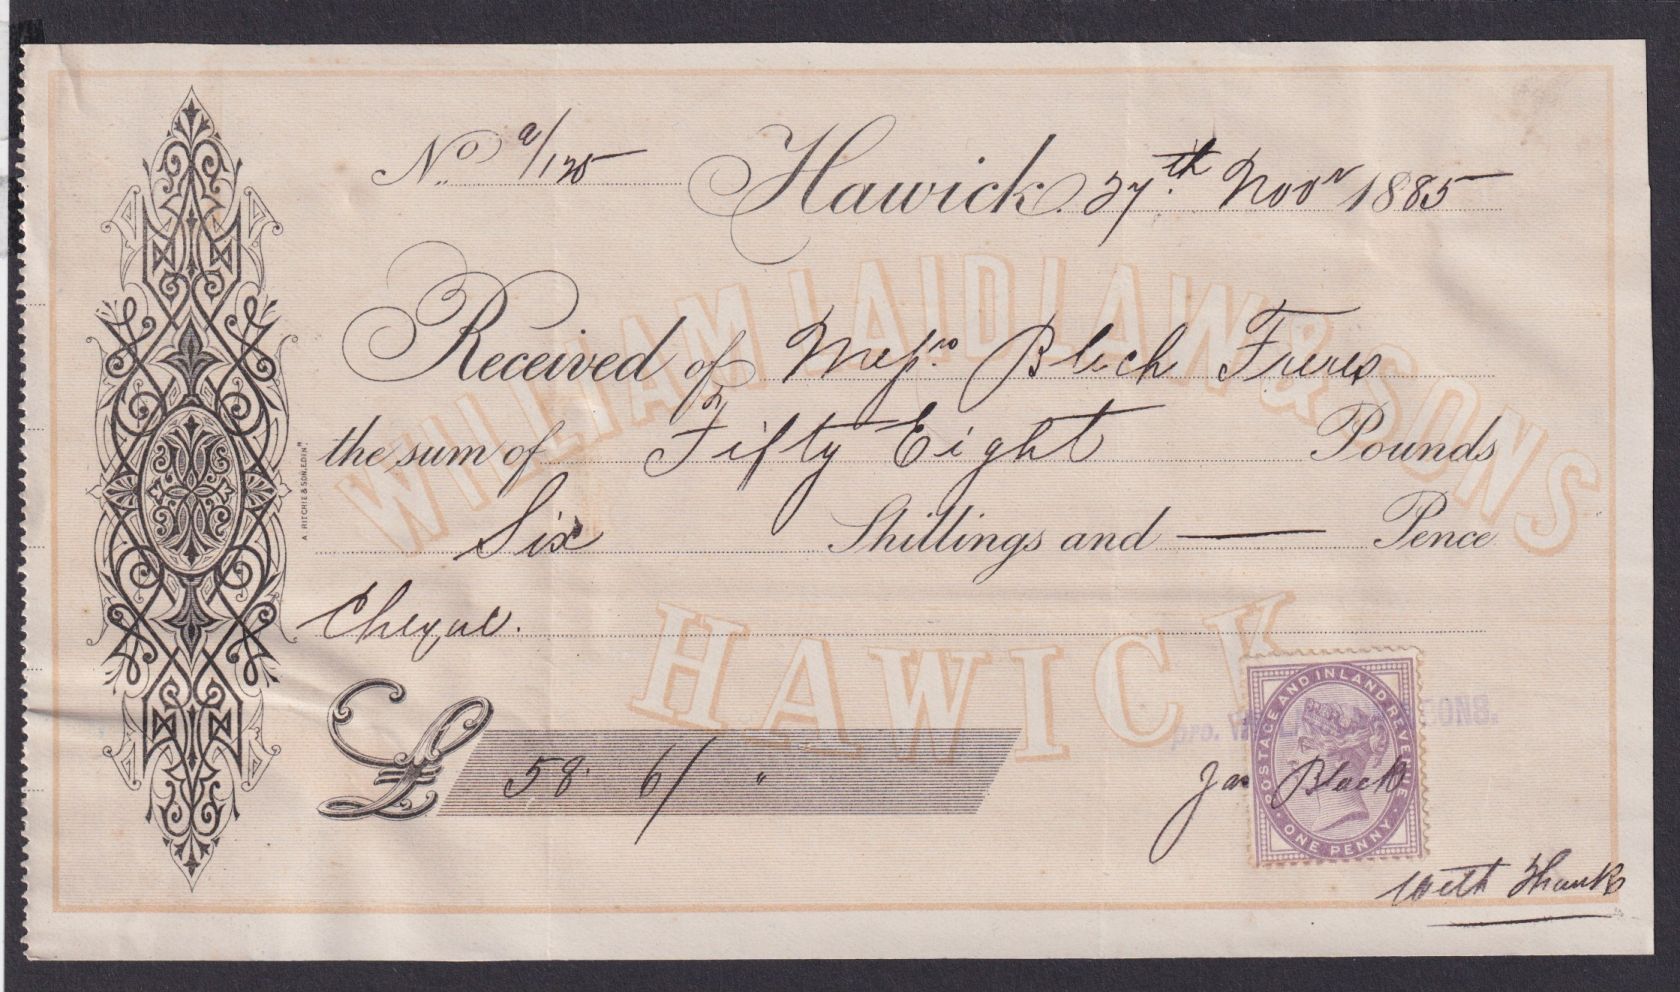 No. a/125 Hawick. 27.th Novr 1885
WILLIAM LAIDLAW & SONS
Received of Messrs. Blech Freres
the sum of Fifty Eight Pounds
Six Shillings and — Pence
Cheque.
HAWICK
£ 58. 6/ "
pro. SONS.
Jas Black
POSTAGE AND INLAND REVENUE
ONE PENNY
With Thanks
A. RITCHIE & SON, EDINR